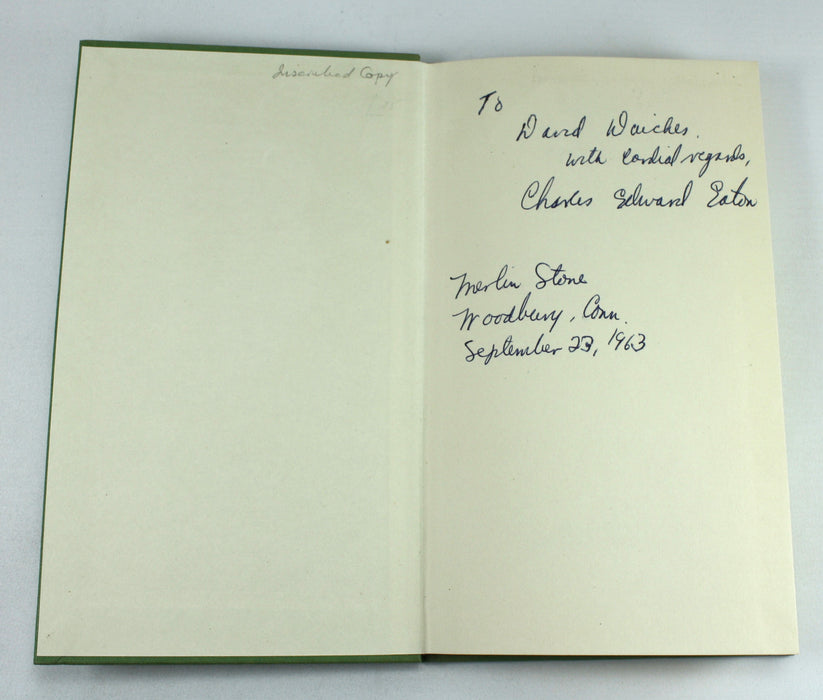 Inscribed Copy
To
David Daiches,
with cordial regards,
Charles Edward Eaton
Merlin Stone
Woodbury, Conn.
September 23, 1963